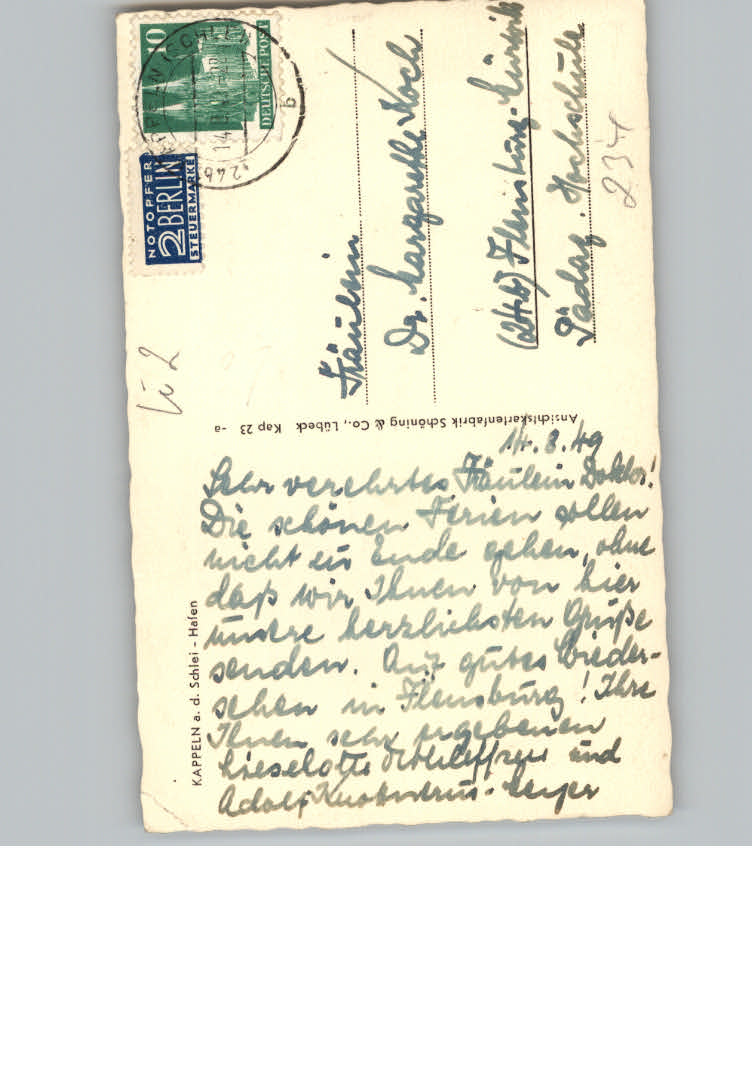 10
DEUTSCHE POST
14
24b
b
NOTOPFER
2 BERLIN
STEUERMARKE
Fräulein
Dr. Margarethe Koch
(24b) Flensburg-Mürwik
Pädag. Hochschule
234
Lü 2
Ansichtskartenfabrik Schöning & Co., Lübeck Kap 23 -a
KAPPELN a. d. Schlei - Hafen
14. 8. 49
Sehr verehrtes Fräulein Doktor!
Die schönen Ferien sollen
nicht zu Ende gehen, ohne
daß wir Ihnen von hier
unsere herzlichsten Grüße
senden. Auf gutes Wieder-
sehen in Flensburg! Ihre
Ihnen sehr ergebenen
Lieselotte und
Adolf